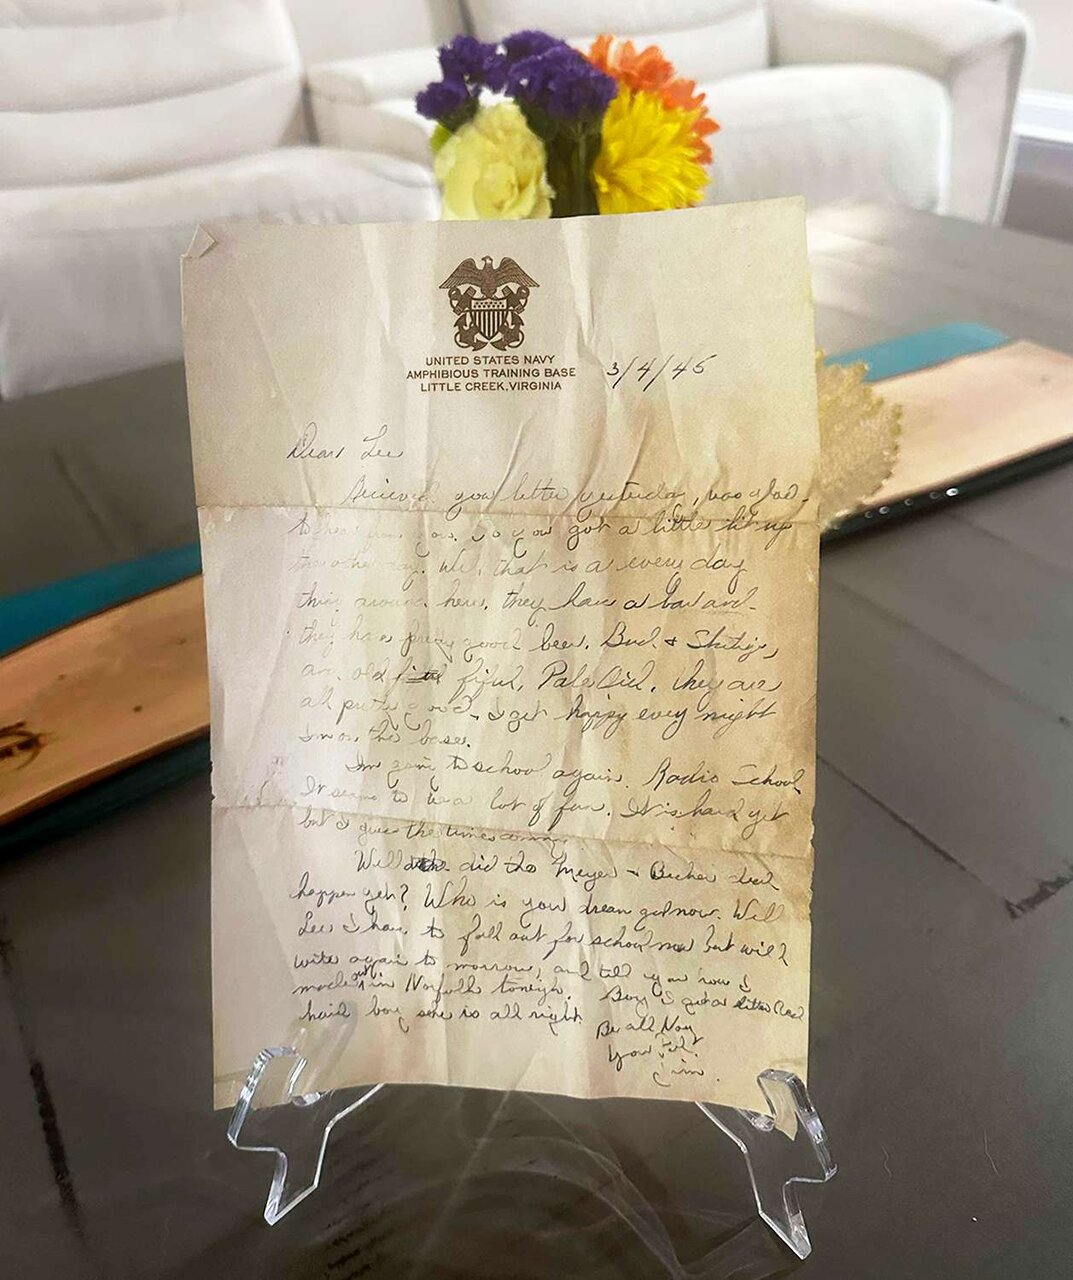 UNITED STATES NAVY
AMPHIBIOUS TRAINING BASE
LITTLE CREEK, VIRGINIA
3/4/45
Dear Lee
Recieved your letter yesterday, was glad
to hear from you. So you got a little lit up
the other day. Well, that is a every day
thing around here. they have a bar and
they have pretty good beer. Bud. & Shlitz,
an old Pale they are
all pretty good. I get happy every night
Im on the base.
Im going to school again. Radio School
It seems to be a lot of fun. It is hard yet
but I guess the times coming.
Well did the Meyer & Becker deal
happen yet? Who is your dream gal now. Well
Lee I have to fall out for school now but will
write again to morrow, and tell you how I
made out in Norfolk tonight. Boy I got a little Red
haid boy she is all right.
Be all Now
Your Pal.
Jim.